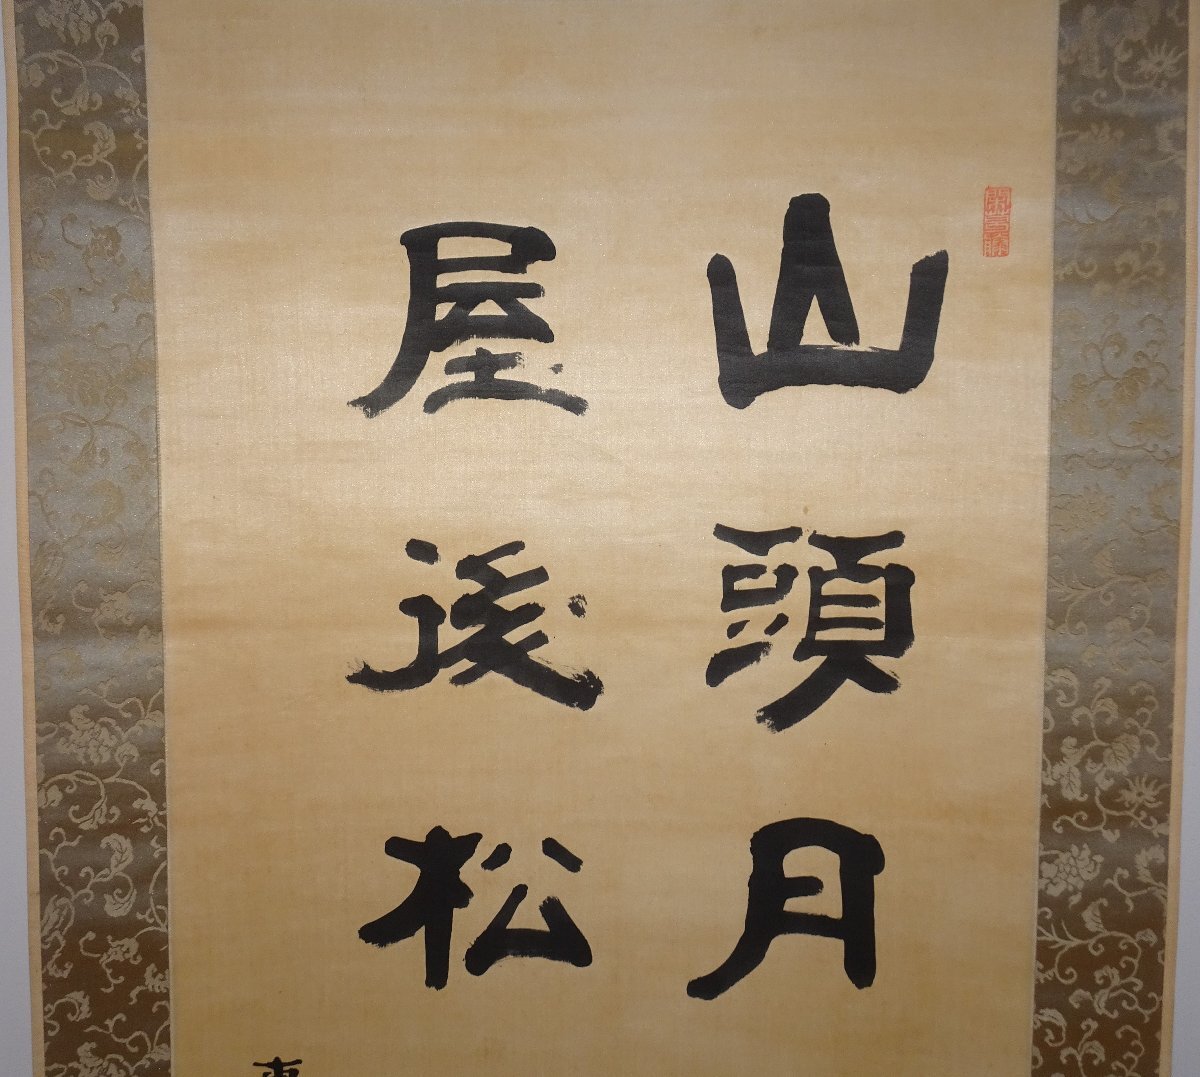 山頭月
屋後松